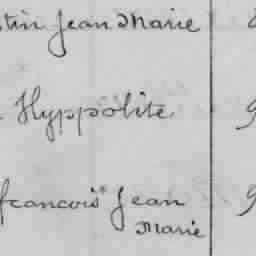 tin Jean Marie
Hyppolite
francois Jean
Marie